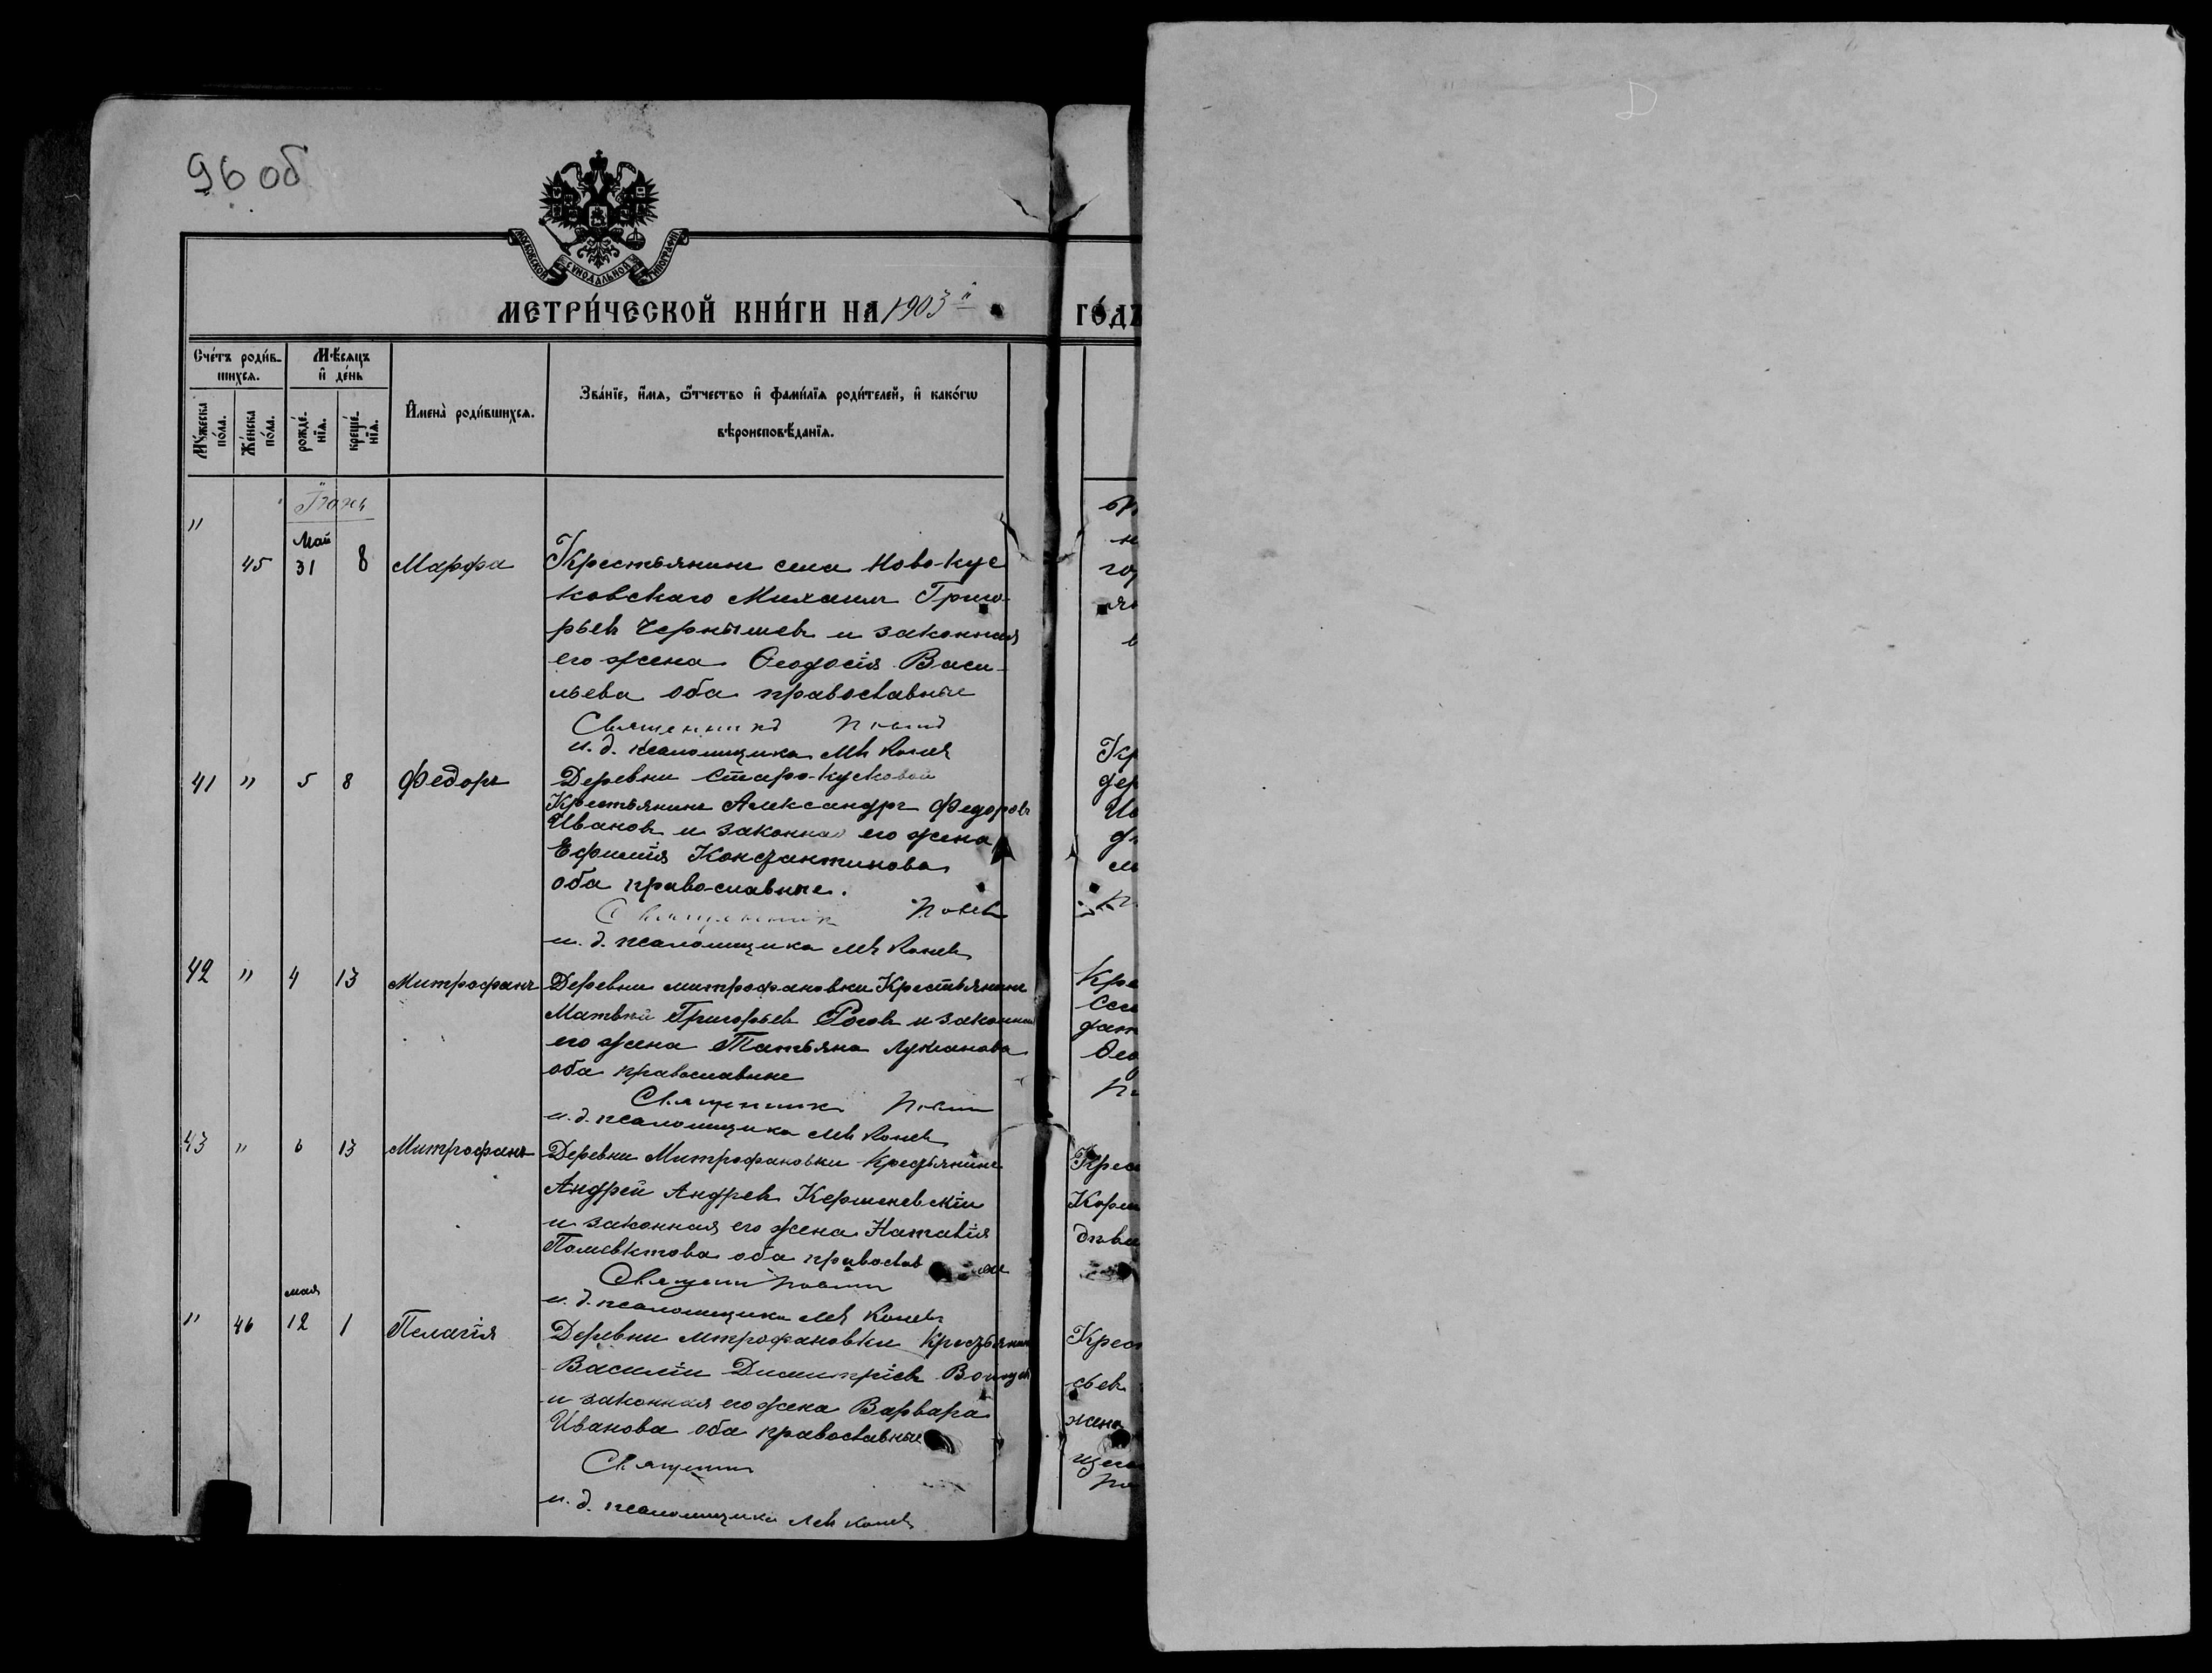 96 об
МОСКОВСКОЙ СѴНОДАЛЬНОЙ ТИПОГРАФІИ
МЕТРИ́ЧЕСКОЙ КНИ́ГИ НА 1903 й ГО́ДЪ
Сче́тъ роди́в-
шихсѧ.
Мѣ́сяцъ
и҆ де́нь
Мꙋ́жеска
по́ла.
Же́нска
по́ла.
рожде́-
нїѧ.
креще́-
нїѧ.
И҆мена̀ роди́вшихсѧ.
Зва́нїе, и҆́мѧ, ѻ҆́тчество и҆ фами́лїѧ роди́телей, и҆ како́гѡ
вѣроисповѣ́данїѧ.
"
Май
45 31 8 Марфа Крестьянинъ села Ново-Кус
ковскаго Михаилъ Григо-
рьевъ Чернышевъ и законная
его жена Ѳеодосія Васи-
льева оба православные
Священникъ
и. д. псаломщика Левъ Коневъ
41 " 5 8 Федоръ Деревни Старо-Кусковой
Крестьянинъ Александръ Федоровъ
Ивановъ и законная его жена
Ефимія Константинова
оба православные.
Священникъ
и. д. псаломщика Левъ Коневъ
42 " 4 13 Митрофанъ Деревни митрофановки Крестьянинъ
Матвѣй Григорьевъ Роговъ и законная
его жена Татьяна Лукіанова
оба православные
Священникъ
и. д. псаломщика Левъ Коневъ
43 " 6 13 Митрофанъ Деревни Митрофановки Крестьянинъ
Андрей Андреевъ
и законная его жена Наталія
Полиевктова оба православ
Священникъ
и. д. псаломщика Левъ Коневъ
мая
" 46 12 1 Пелагія Деревни Митрофановки Крестьянинъ
Василій Димитріевъ
и законная его жена Варвара
Иванова оба православные
Священникъ
и. д. псаломщика Левъ Коневъ